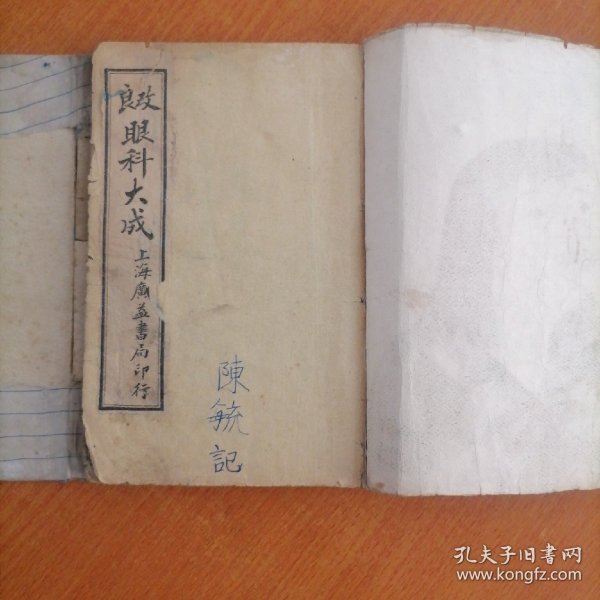 改良眼科大成
上海廣益書局印行
陳毓記
孔夫子旧书网
www.kongfz.com